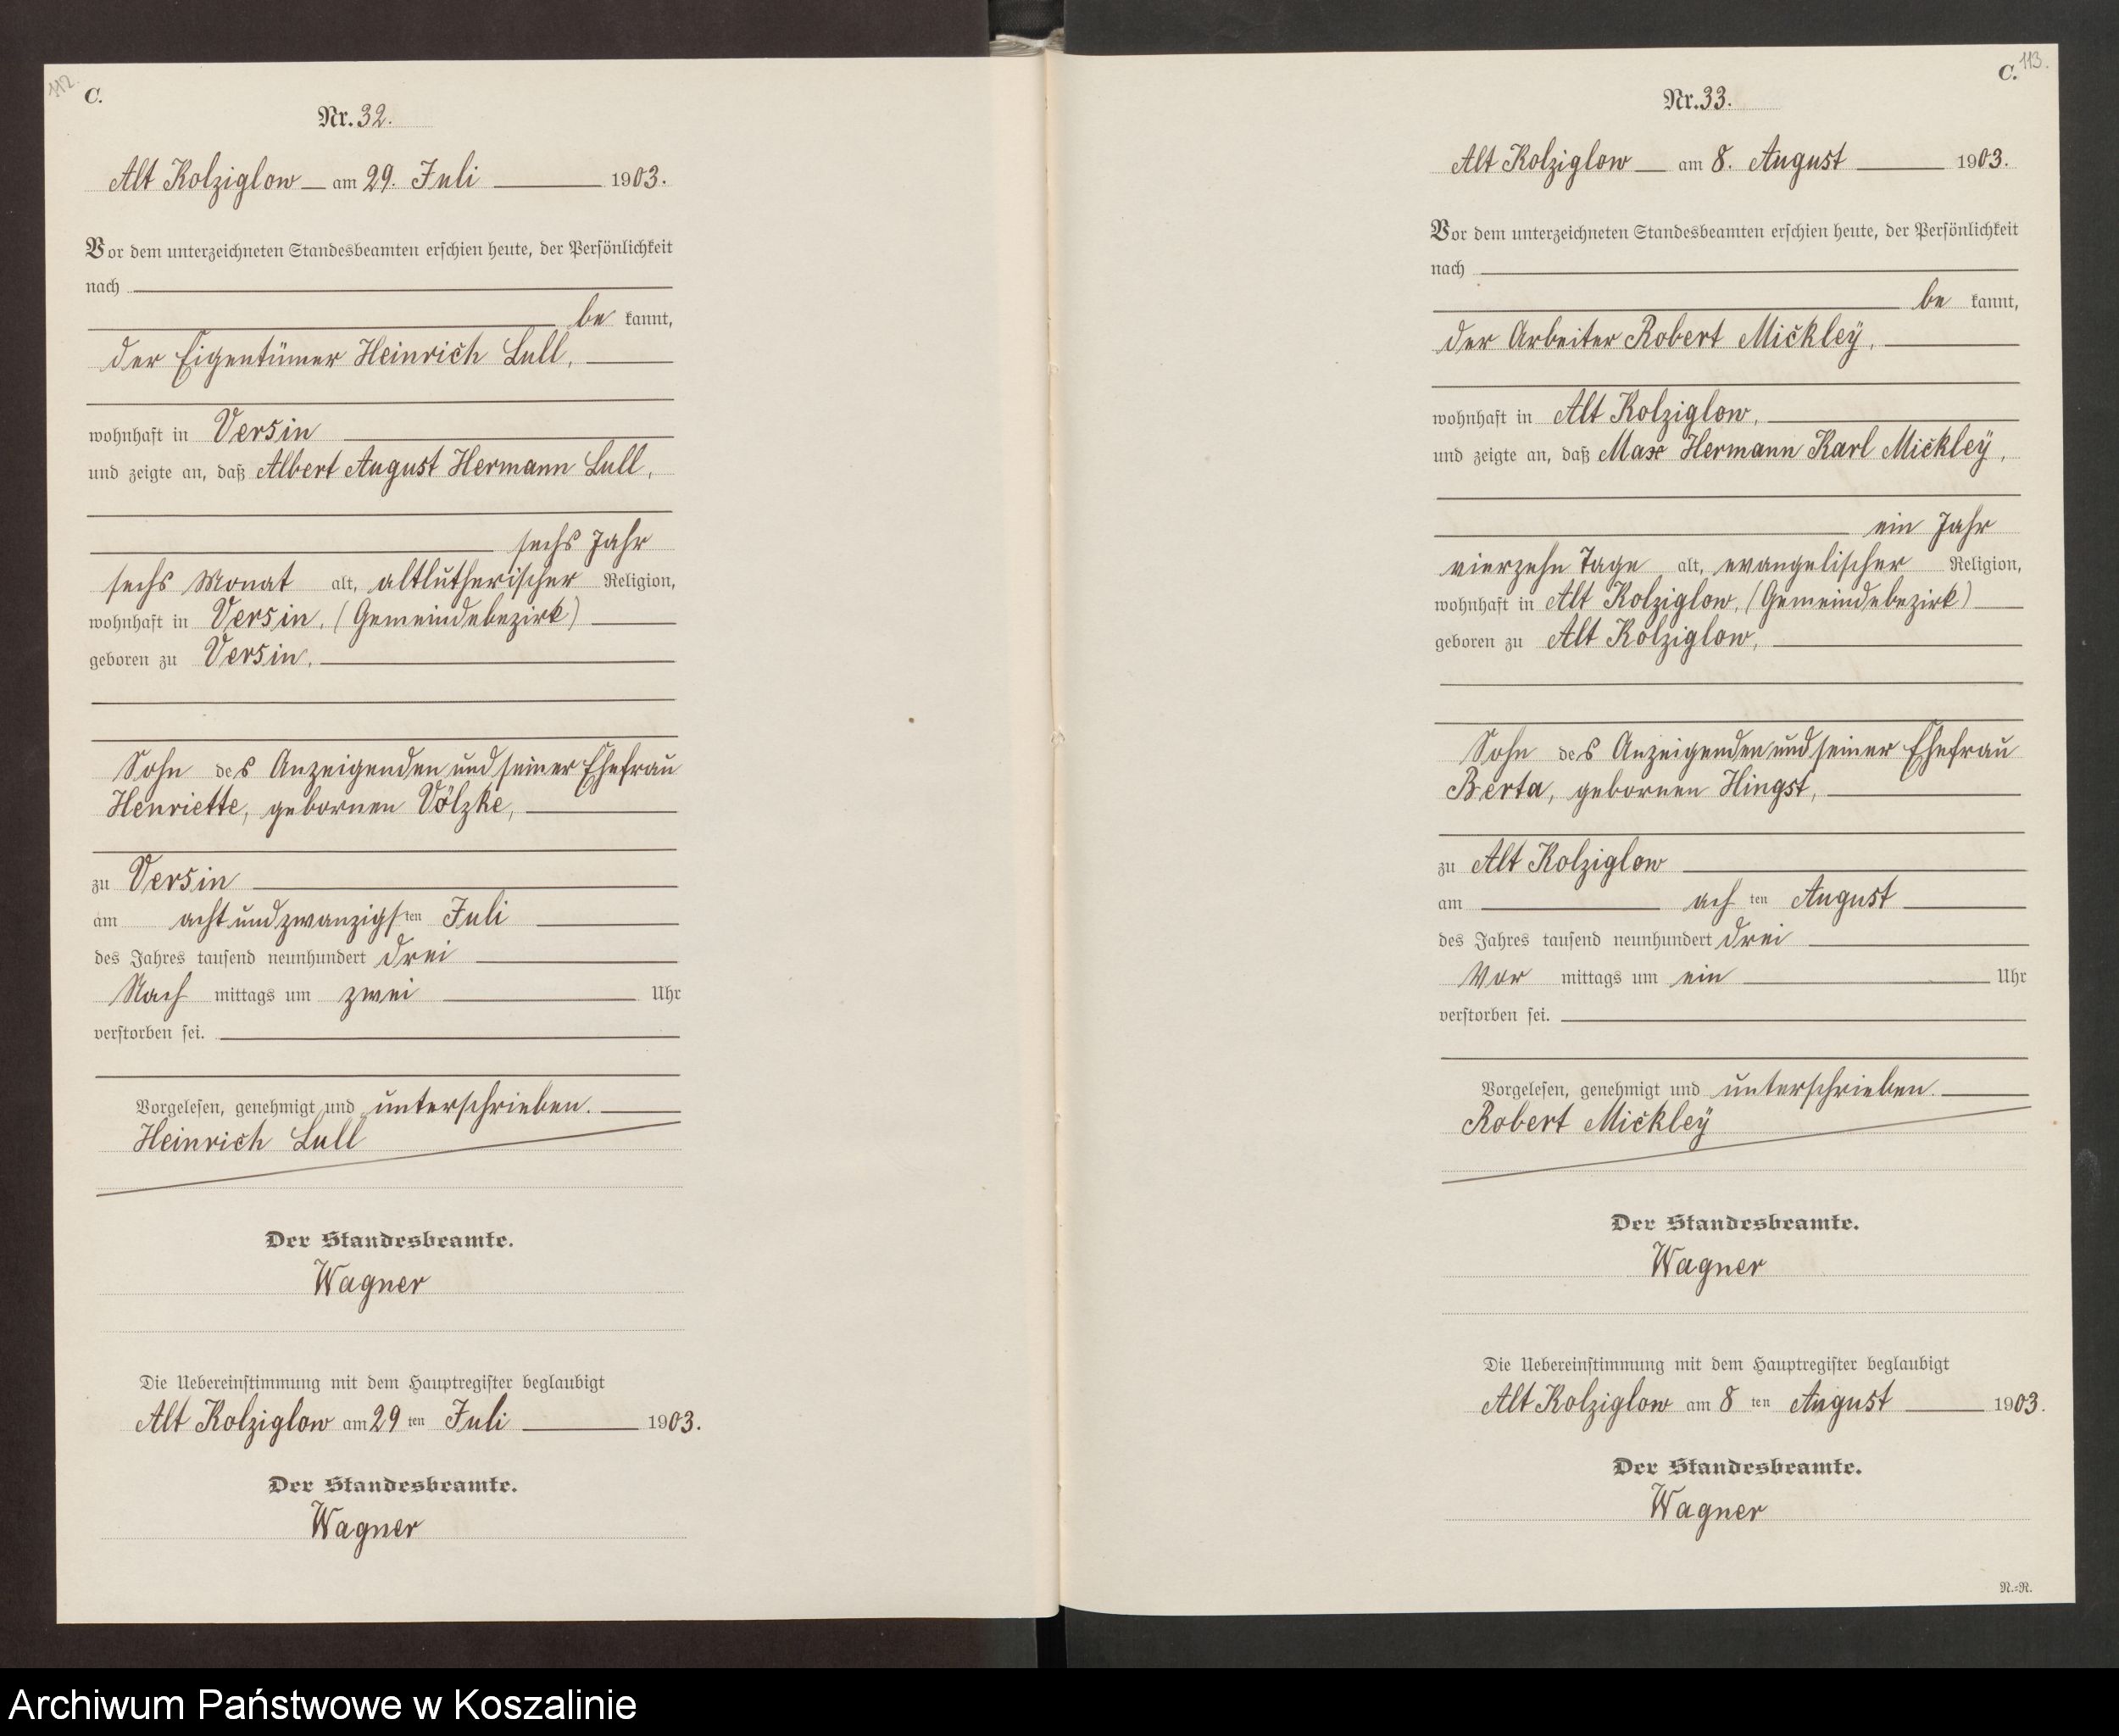 112.
C.
Nr. 32.
Alt Kolziglow am 29. Juli 1903.
Vor dem unterzeichneten Standesbeamten erschien heute, der Persönlichkeit
nach
be kannt,
der Eigentümer Heinrich Lull,
wohnhaft in Versin
und zeigte an, daß Albert August Hermann Lull,
sechs Jahr
sechs Monat alt, altlutherischer Religion,
wohnhaft in Versin, (Gemeindebezirk)
geboren zu Versin,
Sohn des Anzeigenden und seiner Ehefrau
Henriette, gebornen Völzke,
zu Versin
am acht und zwanzigsten Juli
des Jahres tausend neunhundert drei
Nach mittags um zwei Uhr
verstorben sei.
Vorgelesen, genehmigt und unterschrieben.
Heinrich Lull
Der Standesbeamte.
Wagner
Die Uebereinstimmung mit dem Hauptregister beglaubigt
Alt Kolziglow am 29 ten Juli 1903.
Der Standesbeamte.
Wagner
C. 113.
Nr. 33.
Alt Kolziglow am 8. August 1903.
Vor dem unterzeichneten Standesbeamten erschien heute, der Persönlichkeit
nach
be kannt,
der Arbeiter Robert Mickley,
wohnhaft in Alt Kolziglow,
und zeigte an, daß Max Hermann Karl Mickley,
ein Jahr
vierzehn Tage alt, evangelischer Religion,
wohnhaft in Alt Kolziglow, (Gemeindebezirk)
geboren zu Alt Kolziglow,
Sohn des Anzeigenden und seiner Ehefrau
Berta, gebornen Hingst,
zu Alt Kolziglow
am ach ten August
des Jahres tausend neunhundert drei
Vor mittags um ein Uhr
verstorben sei.
Vorgelesen, genehmigt und unterschrieben.
Robert Mickley
Der Standesbeamte.
Wagner
Die Uebereinstimmung mit dem Hauptregister beglaubigt
Alt Kolziglow am 8 ten August 1903.
Der Standesbeamte.
Wagner
N.=R.
Archiwum Państwowe w Koszalinie